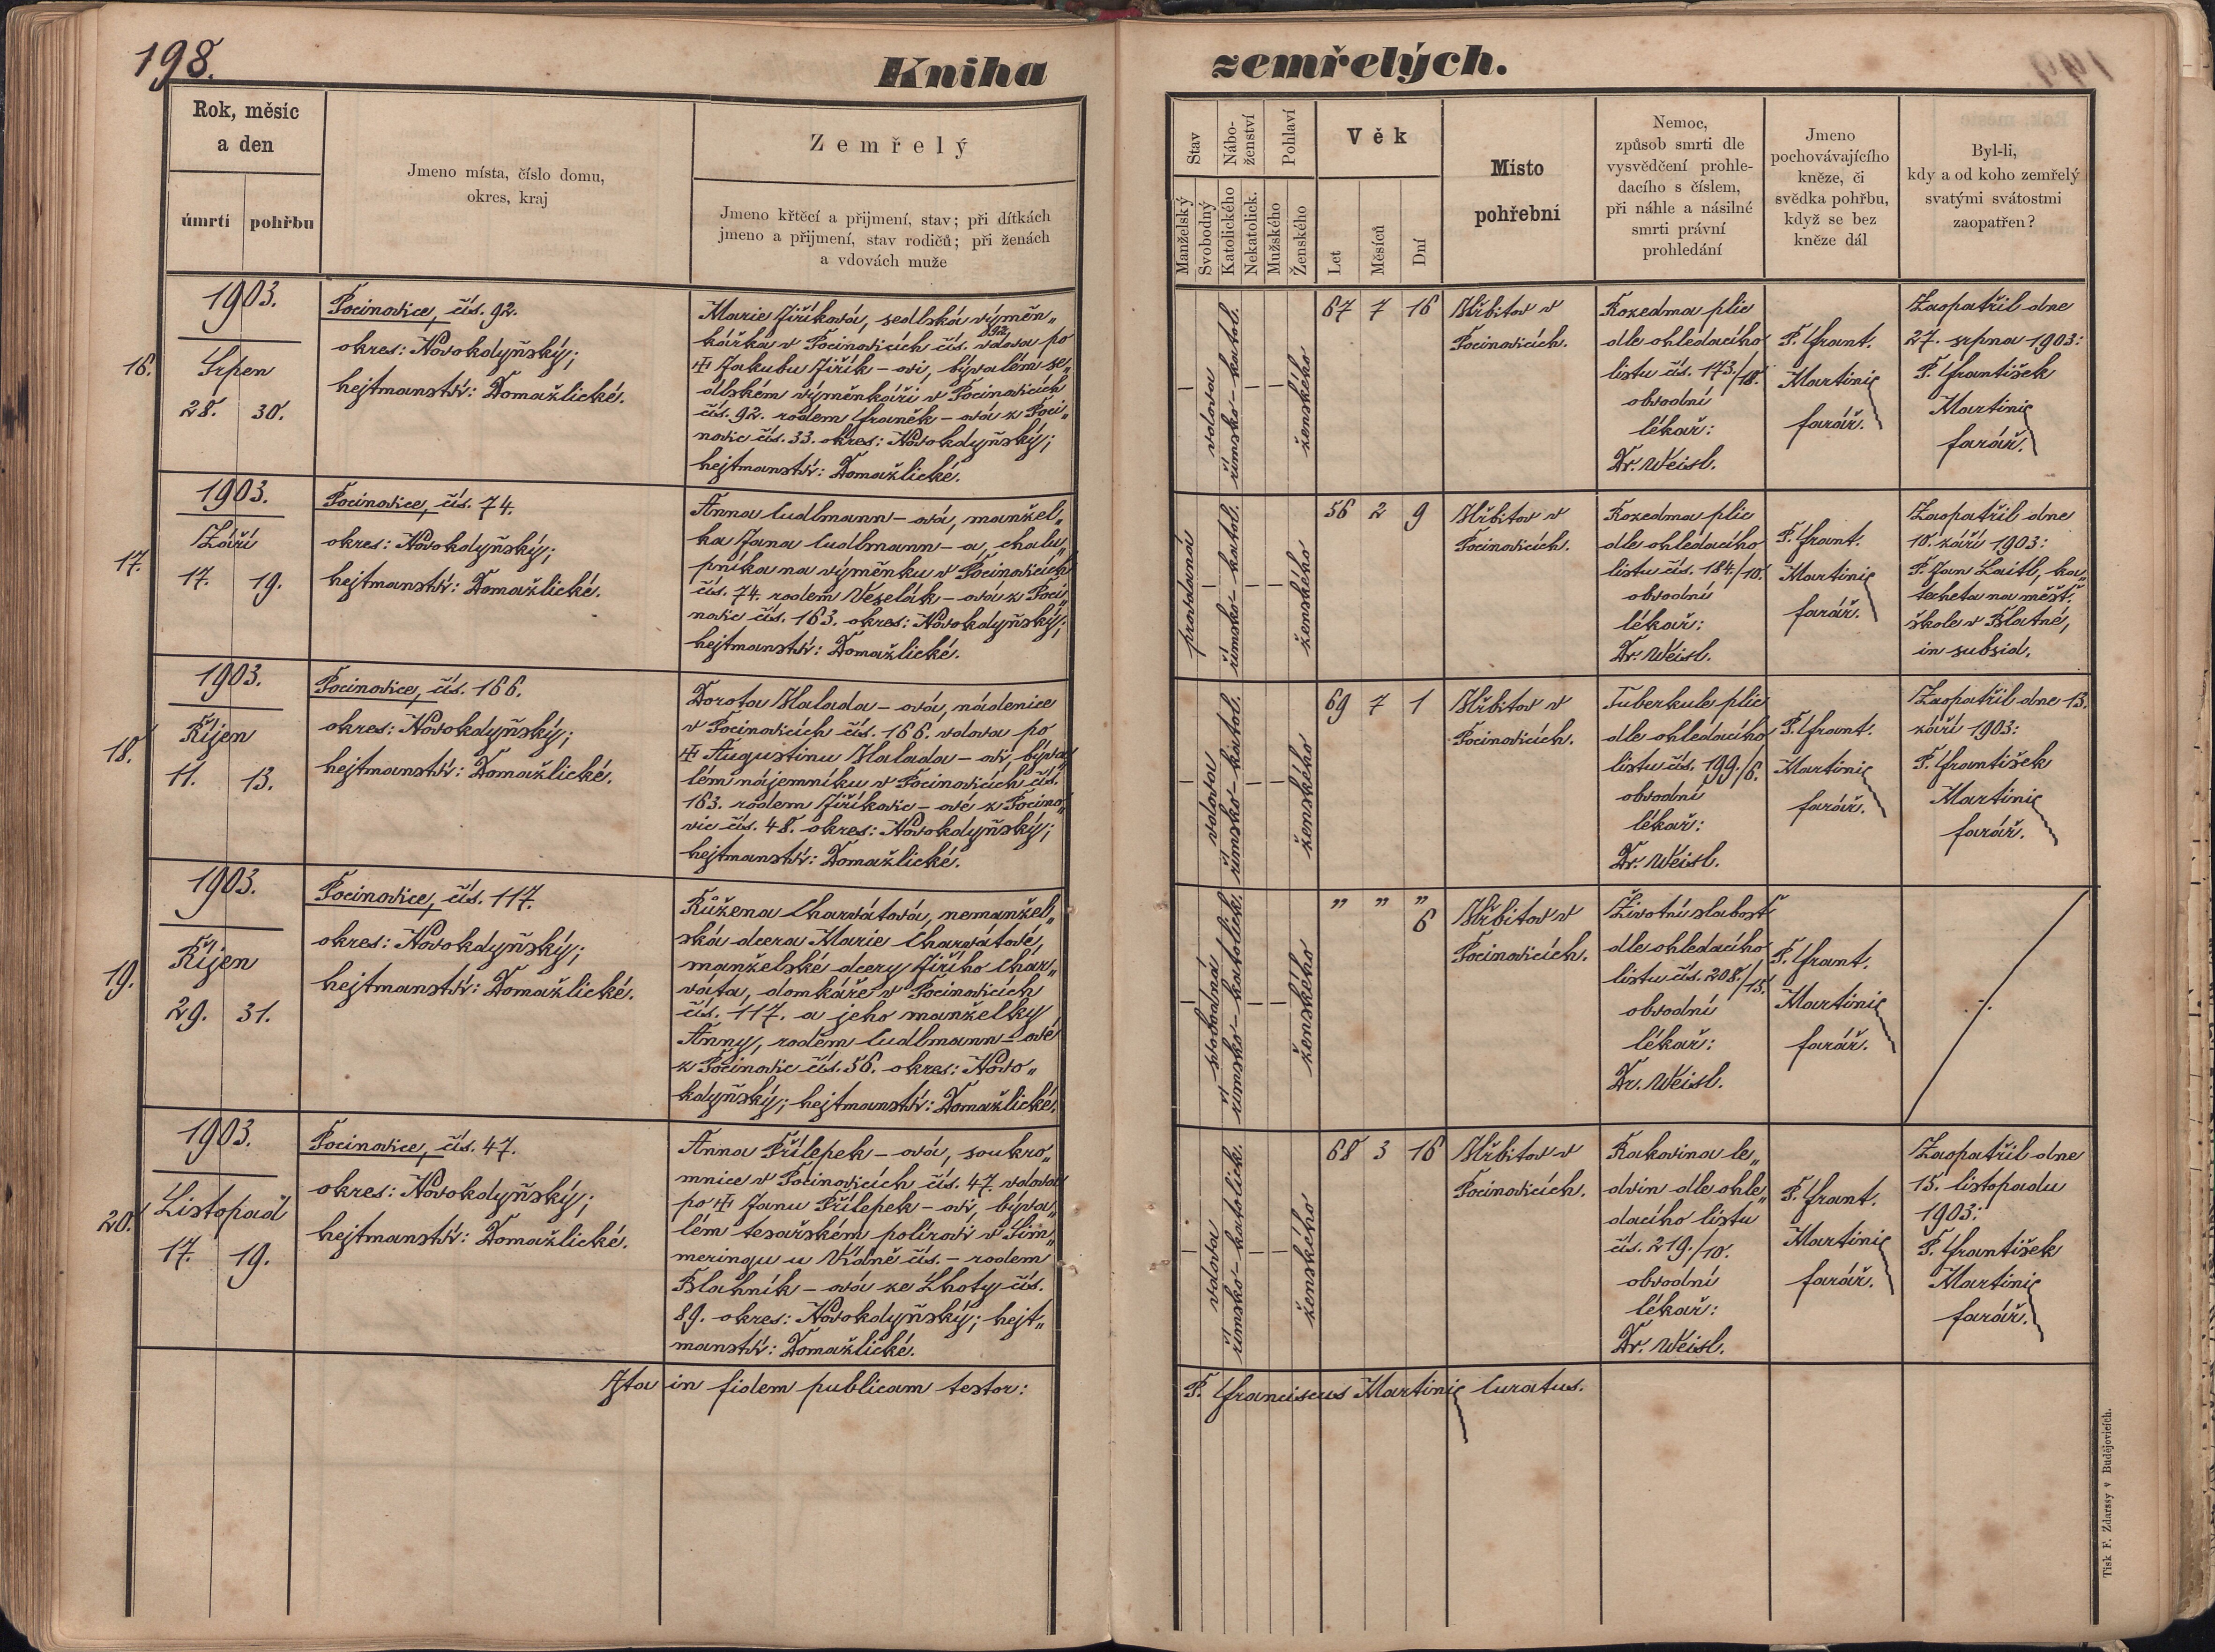 198.
Kniha
zemřelých.
Rok, měsíc
a den
úmrtí
pohřbu
Jmeno místa, číslo domu,
okres, kraj
Zemřelý
Jmeno křtěcí a přijmení, stav; při dítkách
jmeno a přijmení, stav rodičů; při ženách
a vdovách muže
Stav
Manželský
Svobodný
Nábo-
ženství
Katolického
Nekatolick.
Pohlaví
Mužského
Ženského
Věk
Let
Měsíců
Dní
Místo
pohřební
Nemoc,
způsob smrti dle
vysvědčení prohle-
dacího s číslem,
při náhle a násilné
smrti právní
prohledání
Jmeno
pochovávajícího
kněze, či
svědka pohřbu,
když se bez
kněze dál
Byl-li,
kdy a od koho zemřelý
svatými svátostmi
zaopatřen?
16.
1903.
Srpen
28. 30.
Pocinovice, čís. 92.
okres: Novokdyňský;
hejtmanství: Domažlické.
Marie Jiříková, sedlská výměn„
kářka v Pocinovicích čís. 92. vdova po
Jakubu Jiřík-ovi, bývalém se„
dlském výměnkáři v Pocinovicích
čís. 92. rodem Franěk-ová z Poci„
novic čís. 33. okres: Novokdyňský;
hejtmanství: Domažlické.
vdova
římsko-katol.
ženského
67 7 16
Hřbitov v
Pocinovicích.
Rozedma plic
dle ohledacího
listu čís. 173./18.
obvodní
lékař:
Dr. Weisl.
P. Frant.
Martinic
farář.
Zaopatřil dne
27. srpna 1903:
P. František
Martinic
farář.
17.
1903.
Září
17. 19.
Pocinovice, čís. 74.
okres: Novokdyňský;
hejtmanství: Domažlické.
Anna Cudlmann-ová, manžel„
ka Jana Cudlmann-a, chalu„
pníka na výměnku v Pocinovicích
čís. 74. rodem Veselák-ová z Poci„
novic čís. 163. okres: Novokdyňský;
hejtmanství: Domažlické.
provdaná
římsko-katol.
ženského
56 2 9
Hřbitov v
Pocinovicích.
Rozedma plic
dle ohledacího
listu čís. 184./10.
obvodní
lékař:
Dr. Weisl.
P. Frant.
Martinic
farář.
Zaopatřil dne
10. září 1903:
P. Jan Laitl, ka„
techeta na měšť.
škole v Blatné,
in subsid.
18.
1903.
Říjen
11. 13.
Pocinovice, čís. 166.
okres: Novokdyňský;
hejtmanství: Domažlické.
Dorota Halada-ová, nádenice
v Pocinovicích čís. 166. vdova po
Augustinu Halada-ovi, býva„
lém nájemníku v Pocinovicích čís.
163. rodem Jiříkovic-ové z Pocino„
vic čís. 48. okres: Novokdyňský;
hejtmanství: Domažlické.
vdova
římsko-katol.
ženského
69 7 1
Hřbitov v
Pocinovicích.
Tuberkule plic
dle ohledacího
listu čís. 199./6.
obvodní
lékař:
Dr. Weisl.
P. Frant.
Martinic
farář.
Zaopatřil dne 13.
září 1903:
P. František
Martinic
farář.
19.
1903.
Říjen
29. 31.
Pocinovice, čís. 117.
okres: Novokdyňský;
hejtmanství: Domažlické.
Růžena Charvátová, nemanžel„
ská dcera Marie Charvátové,
manželské dcery Jiřího Char„
váta, domkáře v Pocinovicích
čís. 117. a jeho manželky
Anny, rodem Cudlmann-ové
z Pocinovic čís. 56. okres: Novo„
kdyňský; hejtmanství: Domažlické.
svobodná
římsko-katolick.
ženského
„ „ „
6
Hřbitov v
Pocinovicích.
Životní slabost
dle ohledacího
listu čís. 208./15.
obvodní
lékař:
Dr. Weisl.
P. Frant.
Martinic
farář.
20.
1903.
Listopad
17. 19.
Pocinovice, čís. 47.
okres: Novokdyňský;
hejtmanství: Domažlické.
Anna Přílepek-ová, soukro„
mnice v Pocinovicích čís. 47. vdova
po Janu Přílepek-ovi, býva„
lém tesařském polírovi v Sim„
meringu u Vídně čís. - rodem
Blahník-ová ze Lhoty čís.
89. okres: Novokdyňský; hejt„
manství: Domažlické.
vdova
římsko-katolick.
ženského
68 3 16
Hřbitov v
Pocinovicích.
Rakovina le„
dvin dle ohle„
dacího listu
čís. 219./10.
obvodní
lékař:
Dr. Weisl.
P. Frant.
Martinic
farář.
Zaopatřil dne
15. listopadu
1903:
P. František
Martinic
farář.
Ita in fidem publicam testor:
P. Franciscus Martinic Curatus.
Tisk F. Zdarssy v Budějovicích.